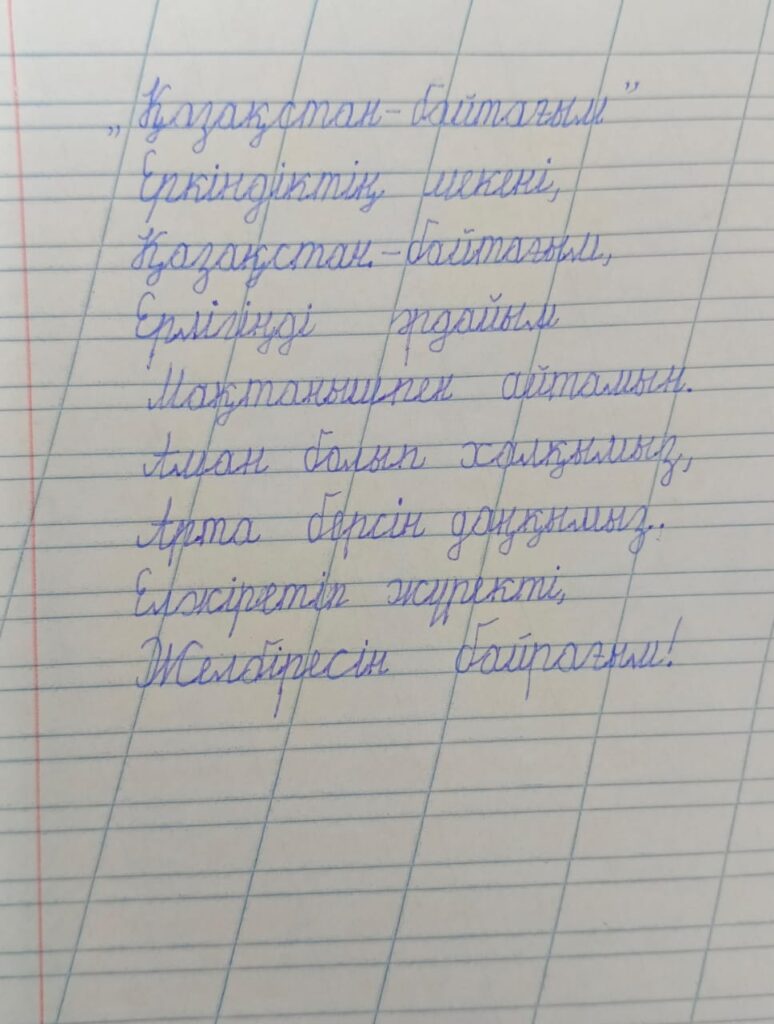 „Қазақстан-байтағым"
Еркіндіктің мекені,
Қазақстан-байтағым,
Ерлігіңді әрдайым
Мақтанышпен айтамын.
Аман болып халқымыз,
Арта берсін даңқымыз.
Елжіретіп жүректі,
Желбіресін байрағым!